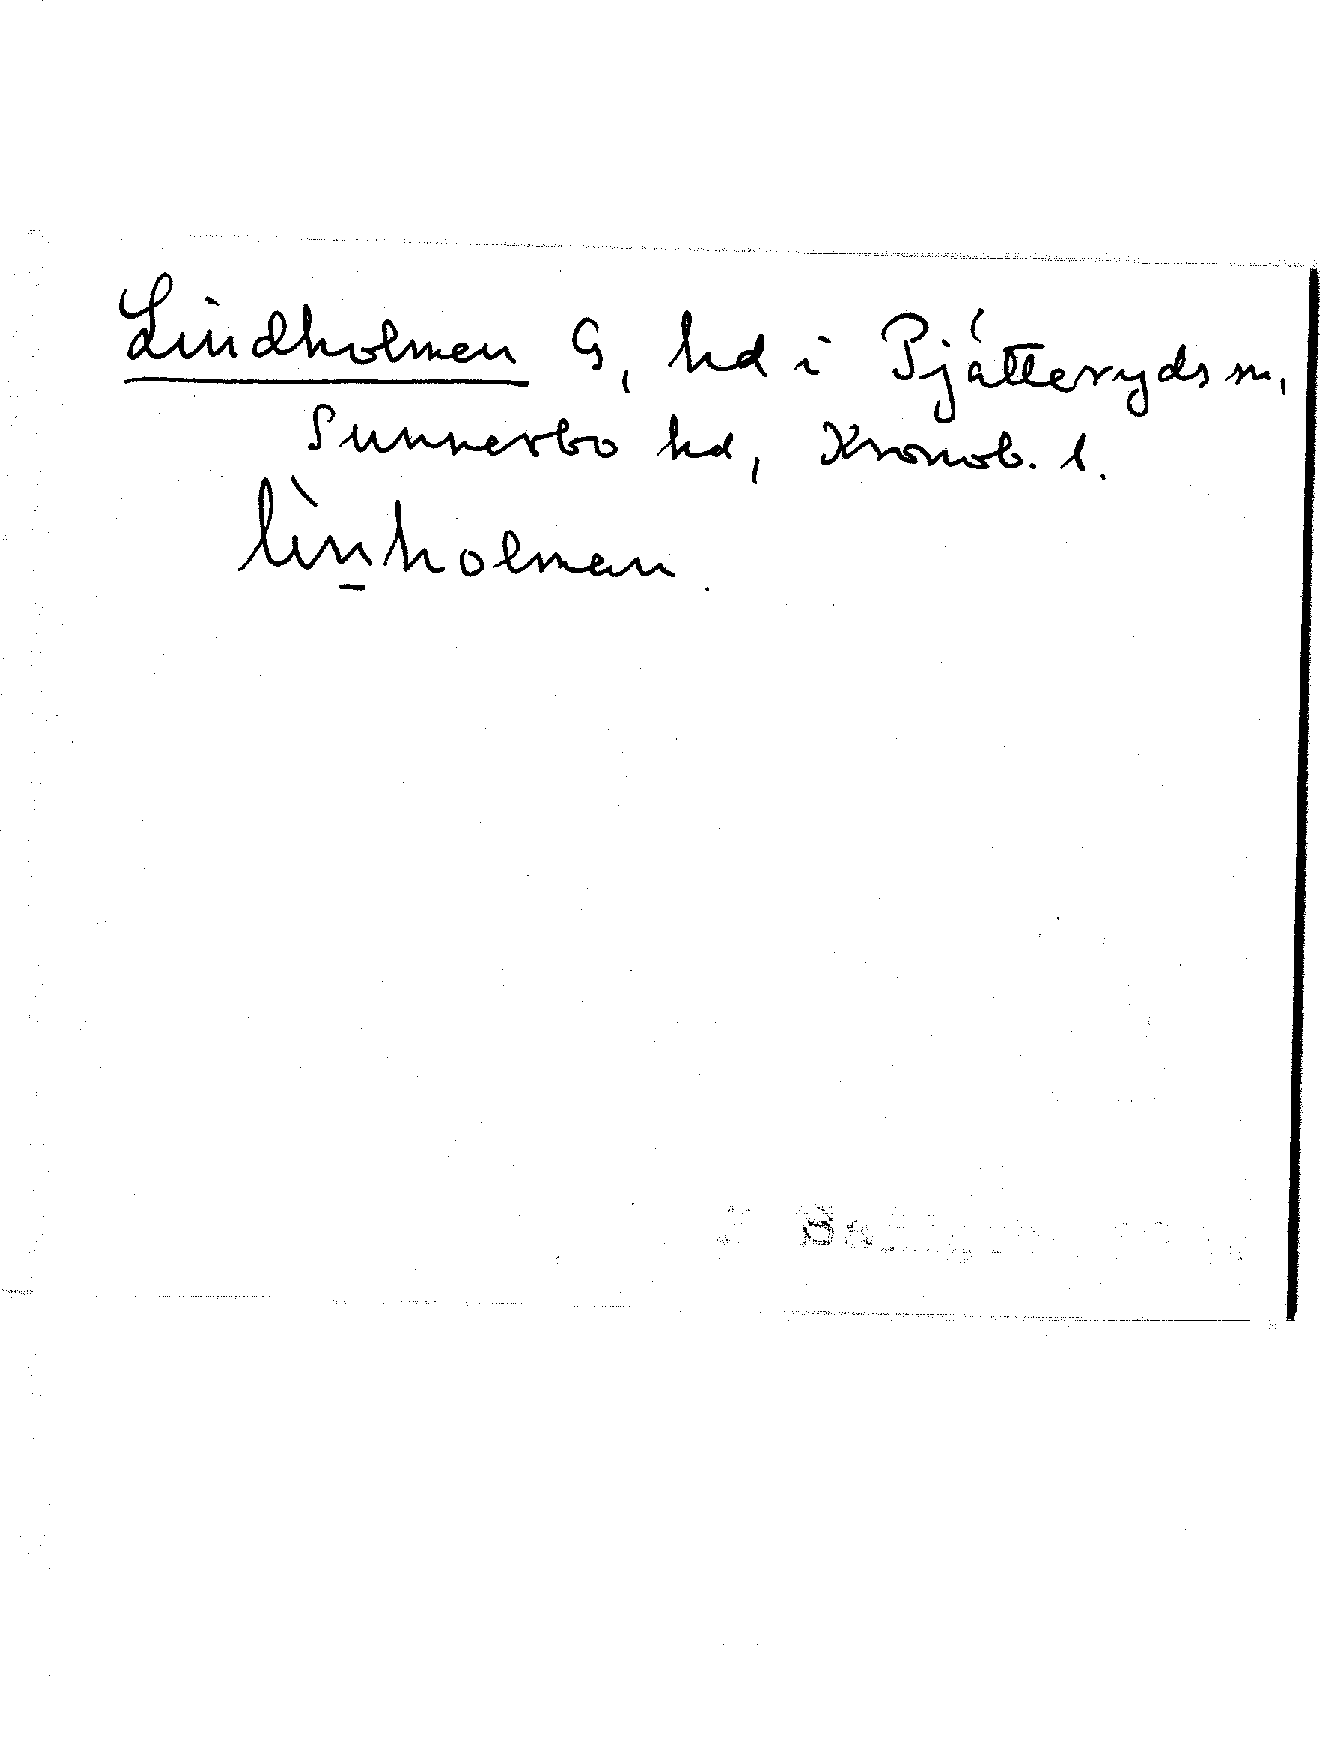 Lindholmen G, hd i Pjätteryds sn,
Sunnerbo hd, Kronob. l.
lìn̲holman.